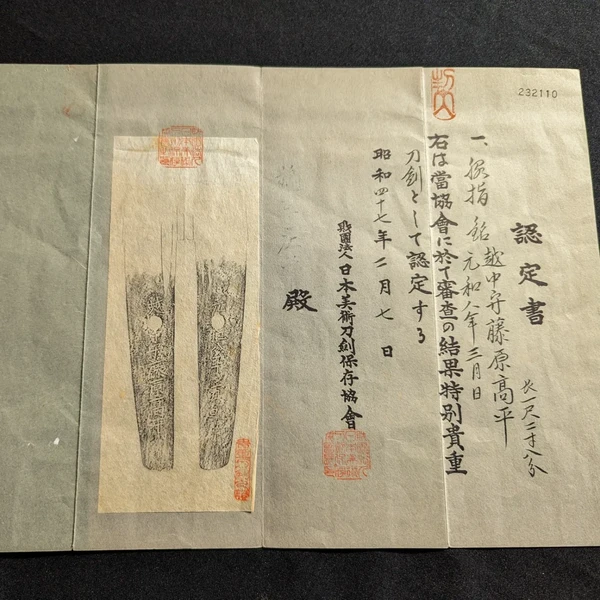 232110
認定書
一、脇指 銘 越中守藤原高平
元和八年三月日
長一尺二寸八分
右は當協會に於て審査の結果特別貴重
刀劍として認定する
昭和四十七年二月七日
財團法人日本美術刀劍保存協會
殿